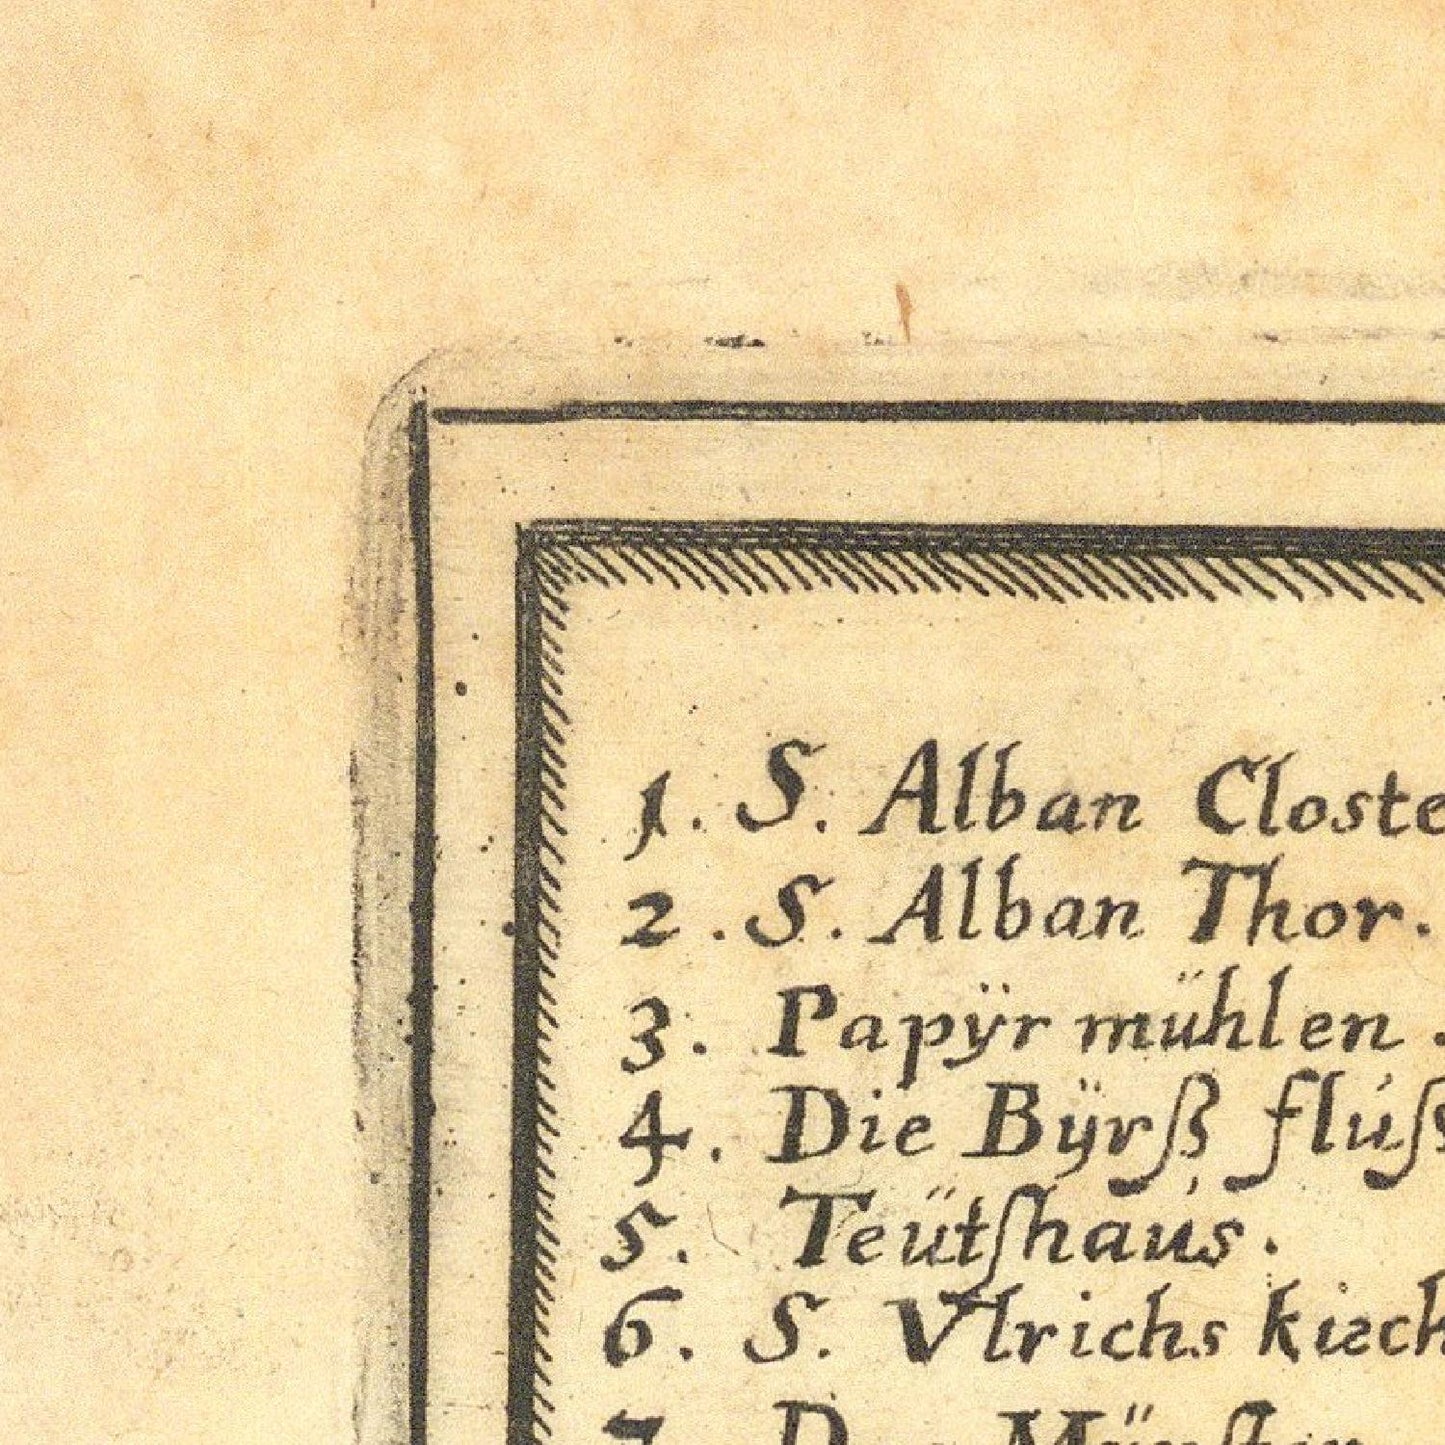 1. S. Alban Closte
2. S. Alban Thor.
3. Papÿr mühlen.
4. Die Bÿrß fluſs
5. Teütſhaus.
6. S. Vlrichs kirch
7. D